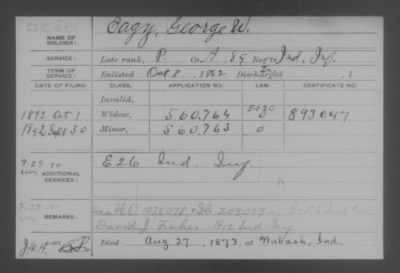 DEAD.
NAME OF SOLDIER: Eagy, George W.
SERVICE: Late rank, P. Co. A, 89 Reg't Ind. Inf.
TERM OF SERVICE: Enlisted Oct 8, 1862 Discharged , 1
DATE OF FILING. CLASS. APPLICATION NO. LAW. CERTIFICATE NO.
Invalid,
1892 Oct 1 Widow, 560.764 893047
1892 Sept 30 Minor, 560.763 0
ADDITIONAL SERVICES: E 26 Ind. Inf.
REMARKS:
David J. Fisher H 12 Ind Inf
Died Aug 27, 1873, at Wabash, Ind.